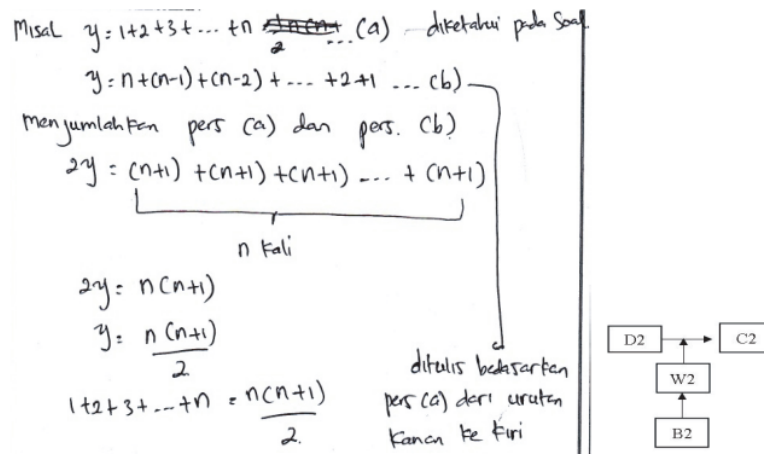 Misal y = 1+2+3+ ... +n ... (a) diketahui pada Soal
y = n+(n-1)+(n-2)+ .... +2+1 ... (b)
menjumlahkan pers (a) dan pers. (b)
2y = (n+1) +(n+1) +(n+1) .... + (n+1)
n kali
2y = n(n+1)
y = n(n+1)/2
1+2+3+...+n = n(n+1)/2.
ditulis bedasarkan
pers (a) dari urutan
kanan ke kiri
D2
C2
W2
B2